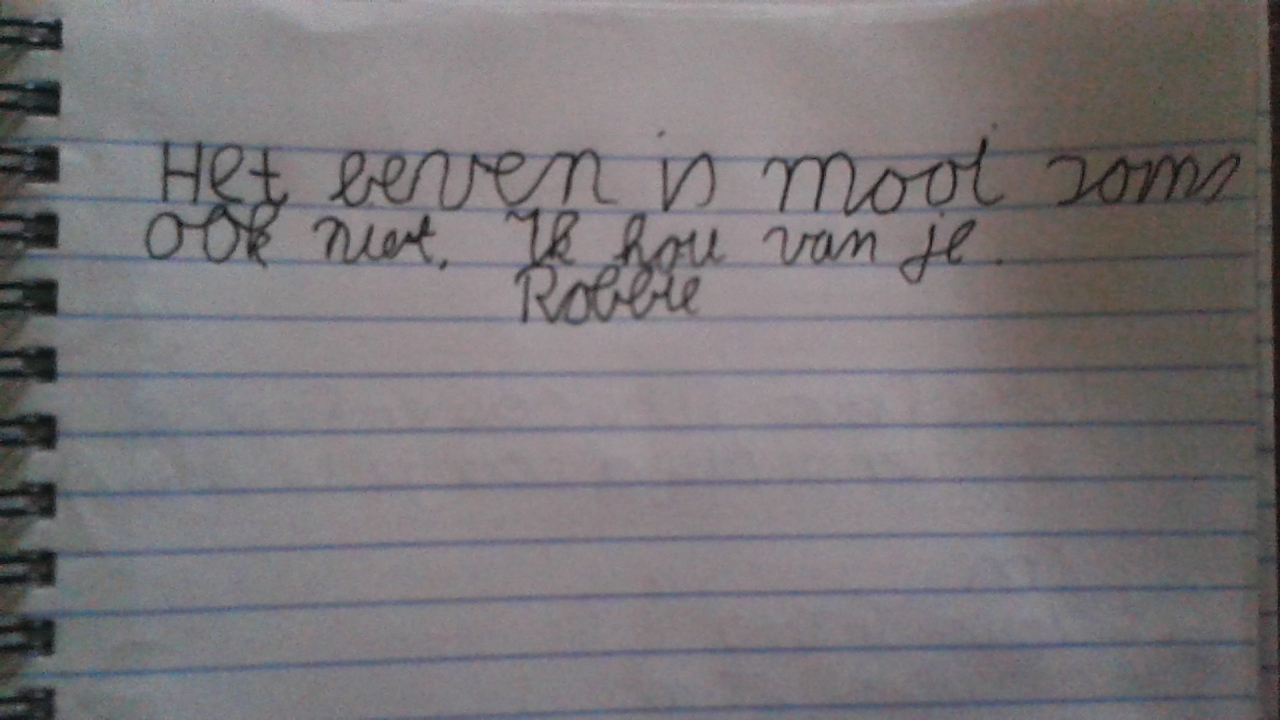 Het eeven is mooi soms
ook niet. Ik hou van je.
Robbie